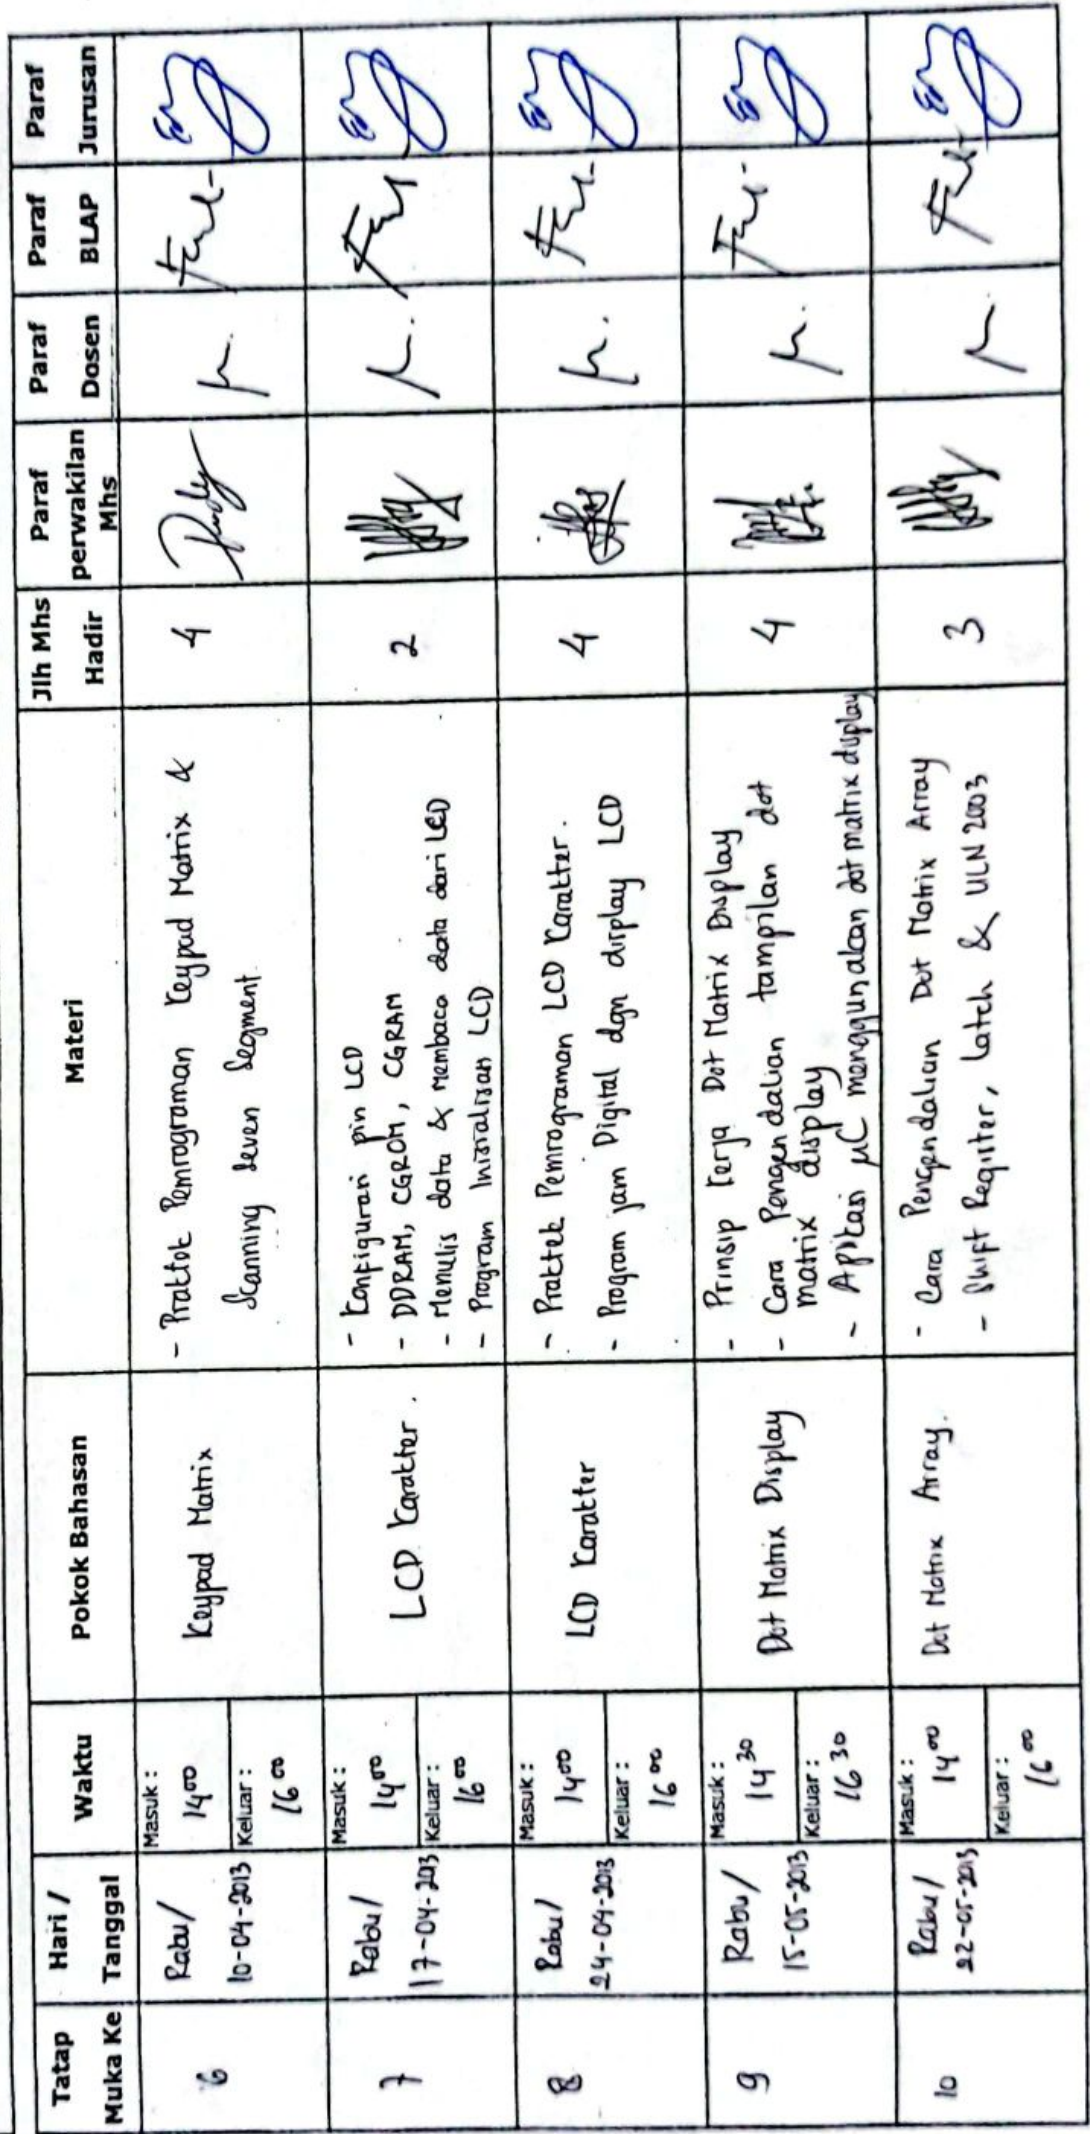 Tatap Muka Ke
Hari / Tanggal
Waktu
Pokok Bahasan
Materi
Jlh Mhs Hadir
Paraf perwakilan Mhs
Paraf Dosen
Paraf BLAP
Paraf Jurusan
6
Rabu/
10-04-2013
Masuk :
14.00
Keluar :
16.00
Keypad Matrix
- Praktek Pemrograman Keypad Matrix &
Scanning Seven Segment.
4
7
Rabu/
17-04-2013
Masuk :
14.00
Keluar :
16.00
LCD Karakter.
- Konfigurasi pin LCD
- DDRAM, CGROM, CGRAM
- Menulis data & membaca data dari LCD
- Program Inisialisasi LCD
2
8
Rabu/
24-04-2013
Masuk :
14.00
Keluar :
16.00
LCD Karakter
- Praktek Pemrograman LCD Karakter.
- Program jam Digital dgn display LCD
4
9
Rabu/
15-05-2013
Masuk :
14.30
Keluar :
16.30
Dot Matrix Display
- Prinsip Kerja Dot Matrix Display
- Cara Pengendalian tampilan dot
matrix display
- Aplikasi μC menggunakan dot matrix display
4
10
Rabu/
22-05-2013
Masuk :
14.00
Keluar :
16.00
Dot Matrix Array.
- Cara Pengendalian Dot Matrix Array
- Shift Register, Latch & ULN 2003
3